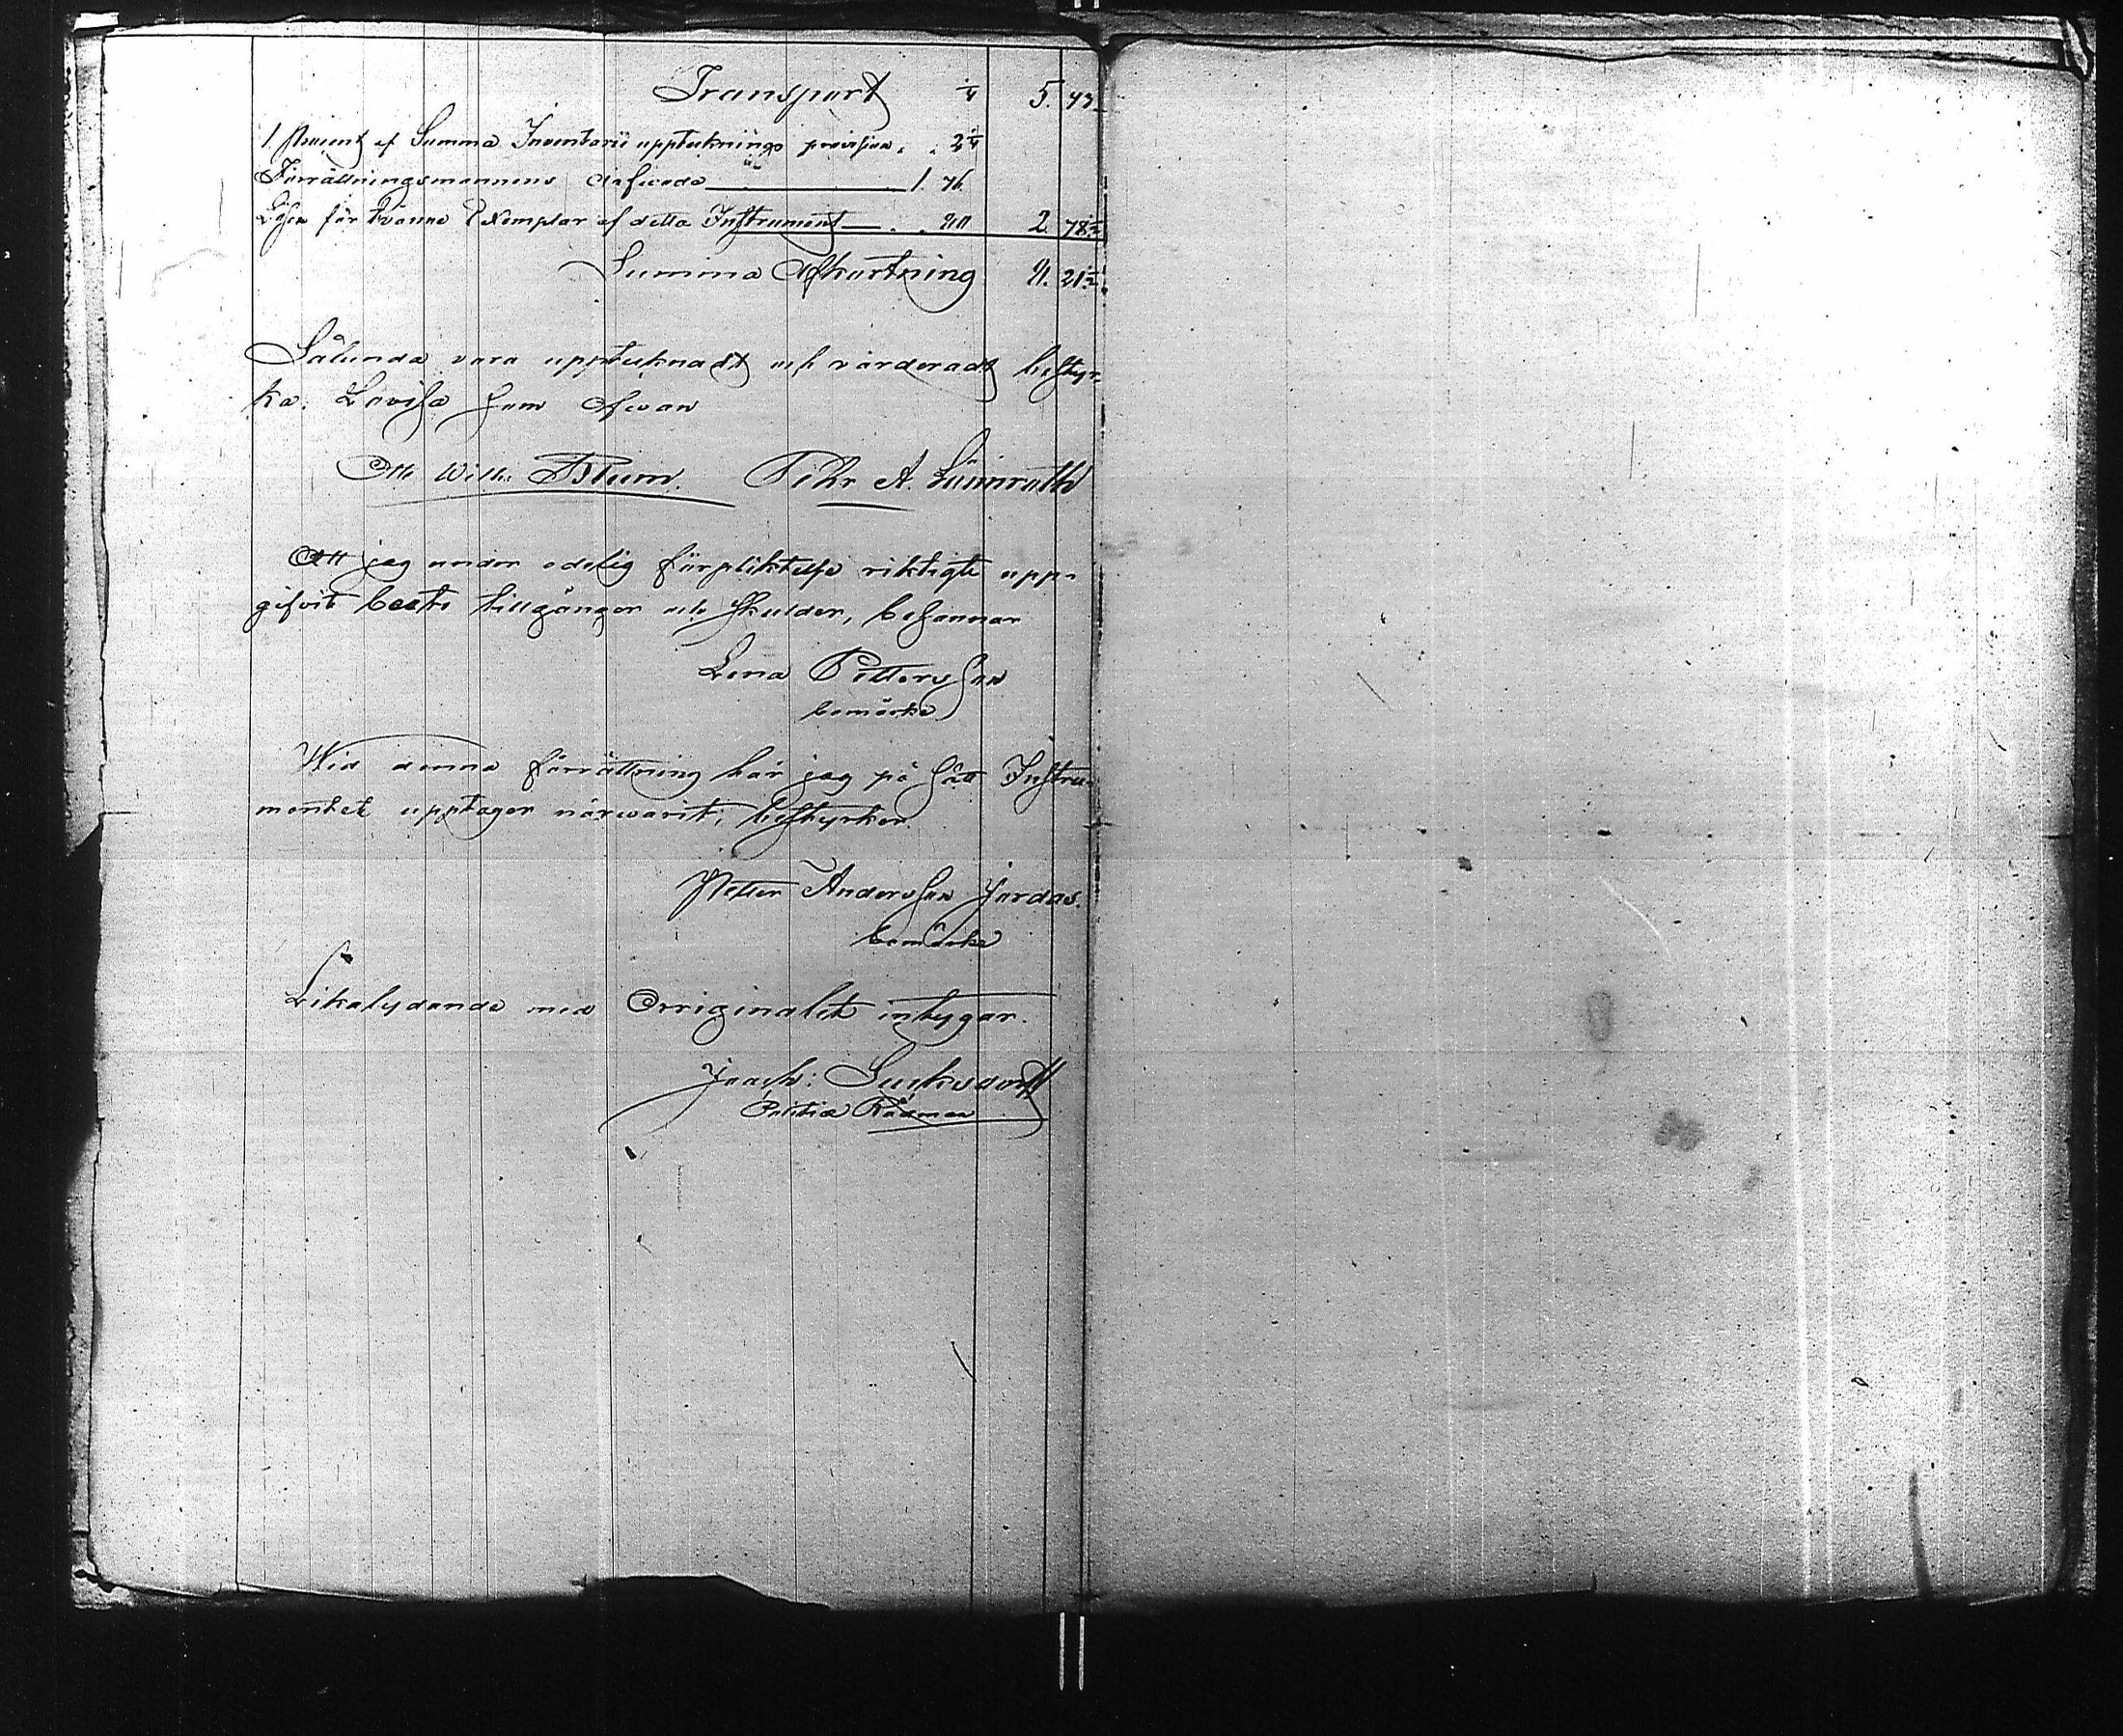 Transport 5. 43.
1 Procent af Summa Inventarii uppteknings provision . . 2¼
Förrättningsmannens arfwode 1. 76
Lösen för tvänne Exemplar af detta Instrument 2. 78½
Summa Afkortning 21½
Sålunda vara upptecknadt och värderadt bestyr-
ka. Lovisa som ofwan
Otto Wilh: Blum. Petr A.
Att jag under edelig förpliktelse riktigte upp-
gifvit boets tillgångar och skulder, besannar
Lena Pettersson
bomärke
Wid denna förrättning har jag på sätt Instru-
mentet upptager närwarit, bestyrker.
Petter Andersson Jordas.
bomärke
Likalydande med Orriginalet intygar.
Joach: Lucksdorff
Politie Rådman